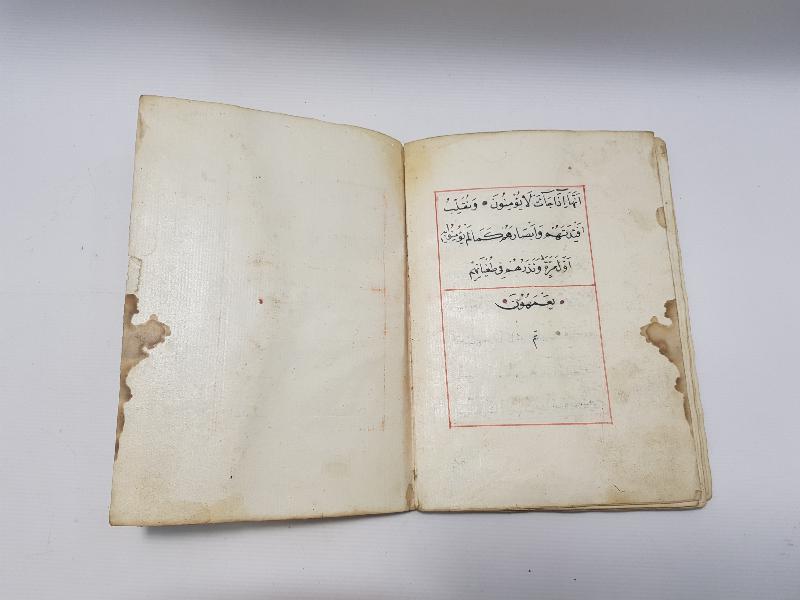 اَنَّهَا اِذَا جَآءَتْ لَا يُؤْمِنُونَ • وَنُقَلِّبُ
اَفْئِدَتَهُمْ وَاَبْصَارَهُمْ كَمَا لَمْ يُؤْمِنُوا بِهِ
اَوَّلَ مَرَّةٍ وَنَذَرُهُمْ فِى طُغْيَانِهِمْ
• يَعْمَهُونَ •
تم